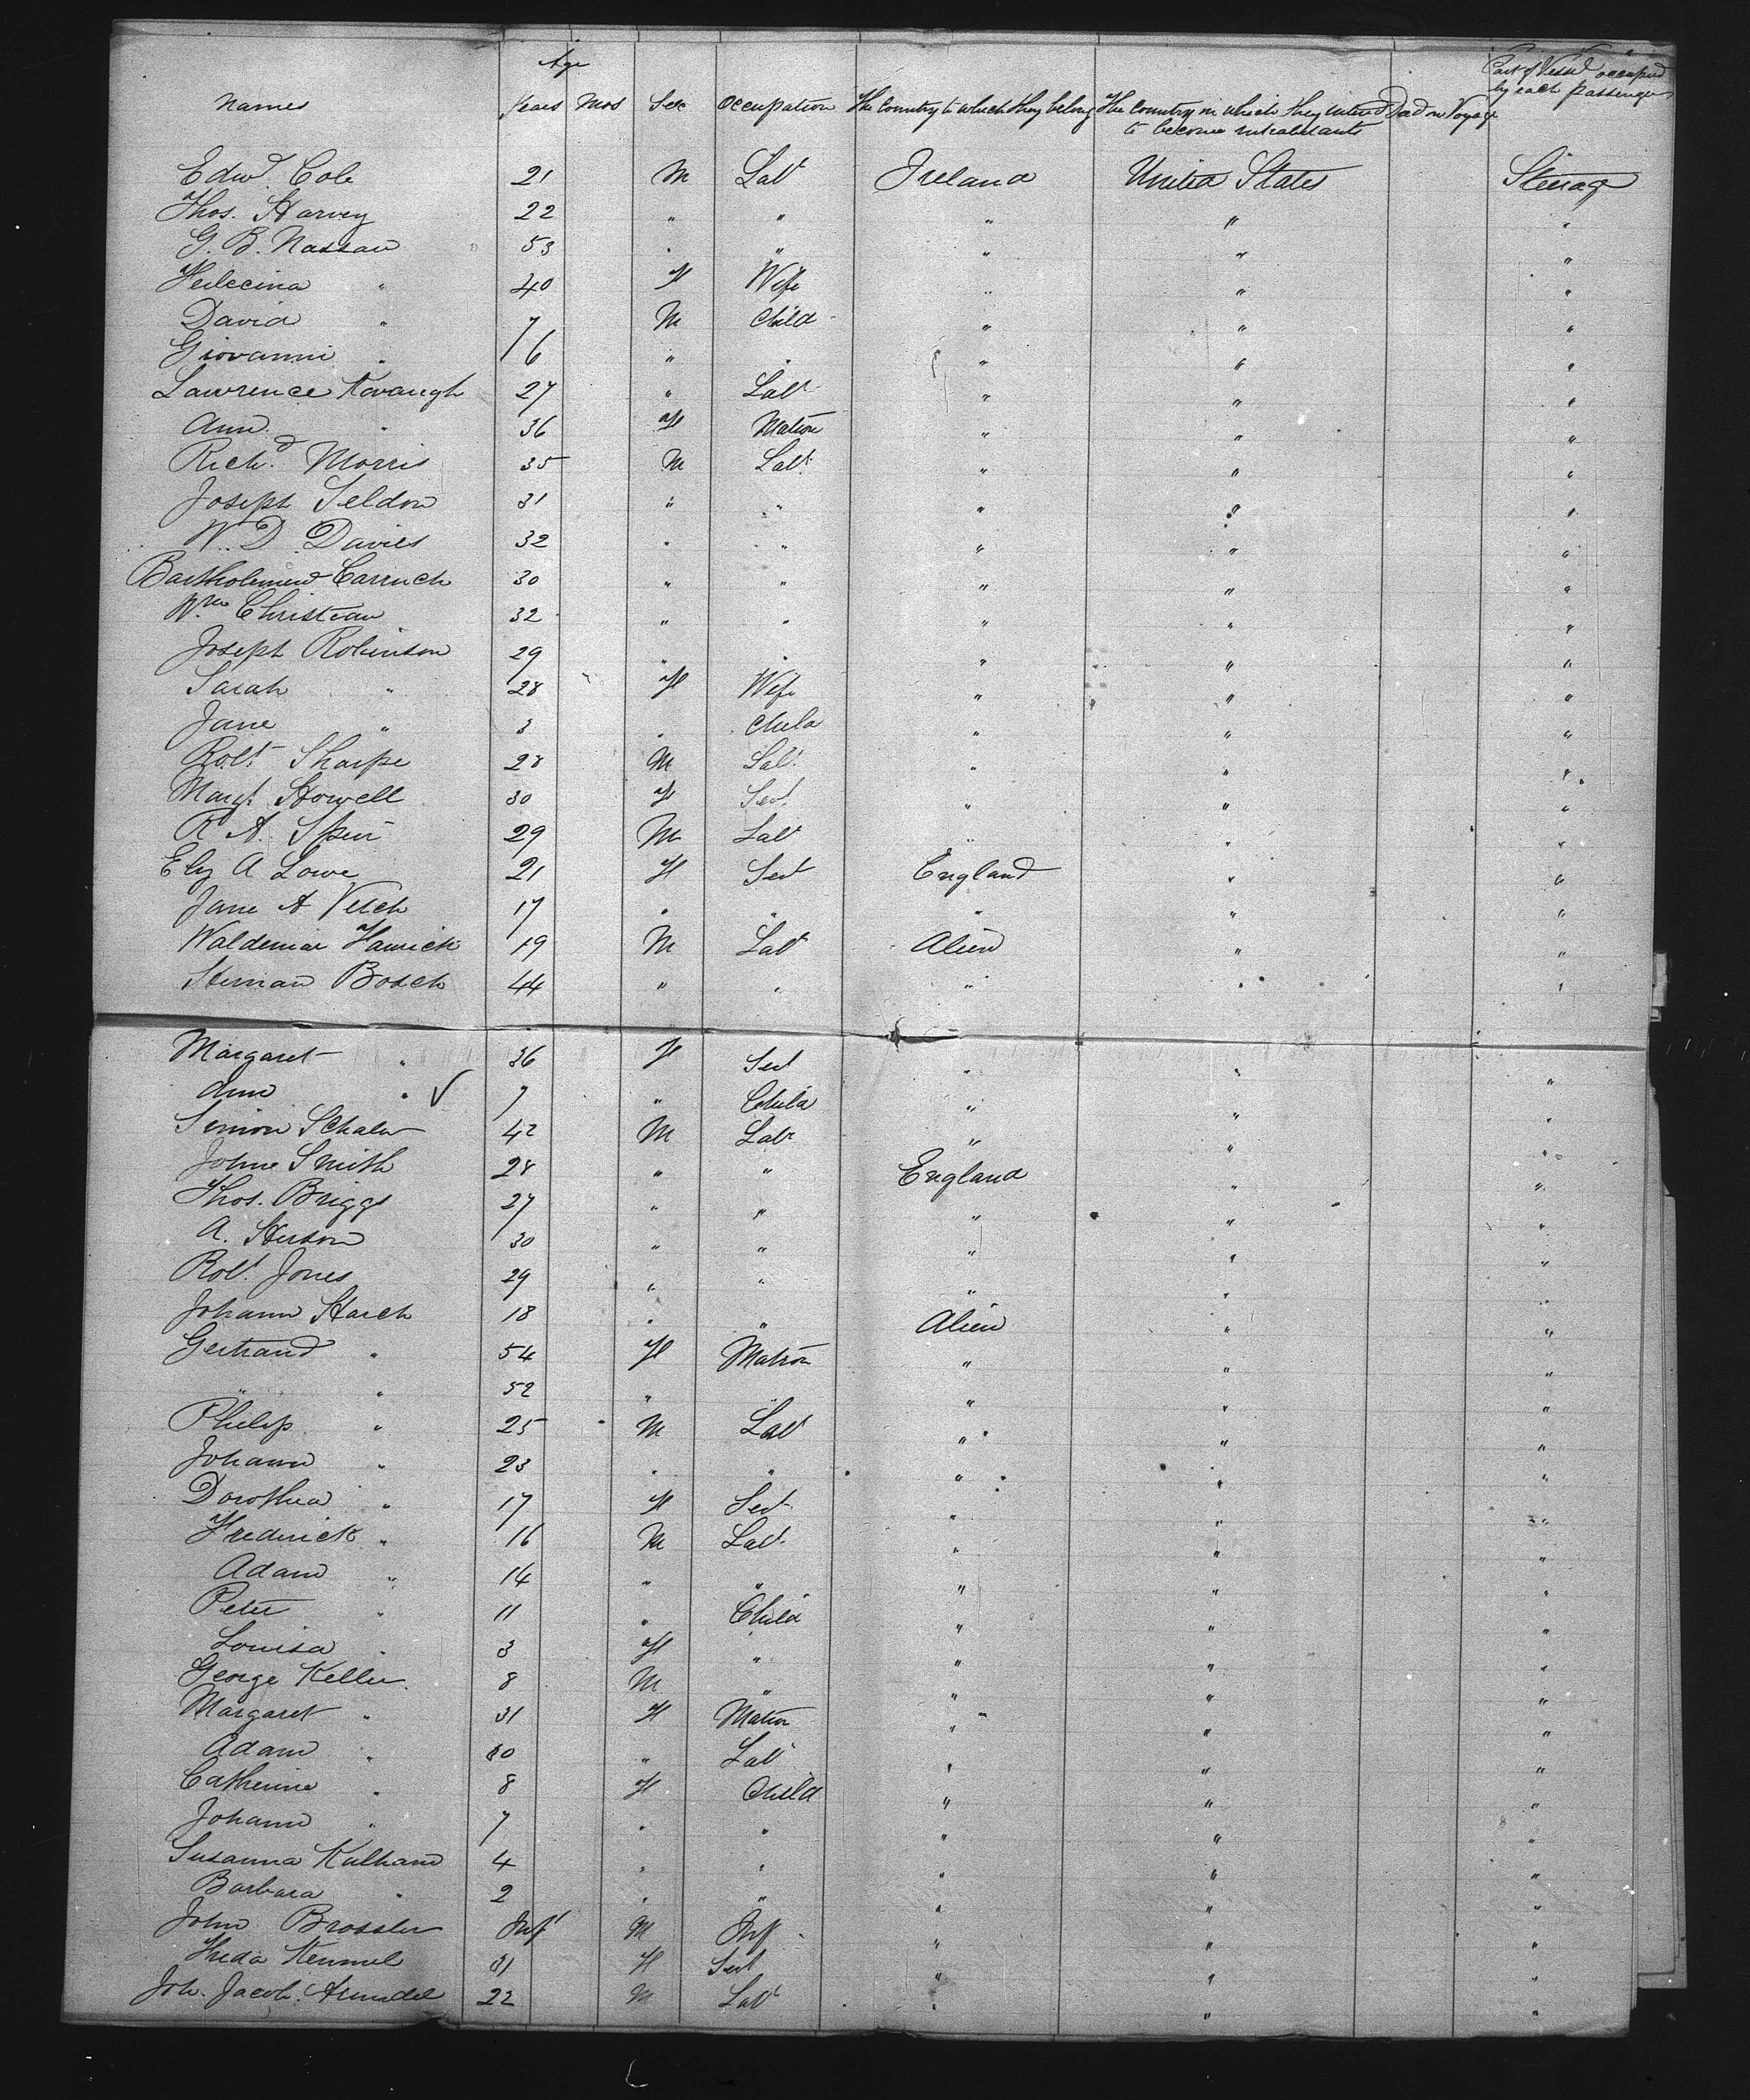 Age
Part of Vessel occupied by each passenger
Names Years Mos Sex Occupation The Country to which they belong The Country in which they intend to become inhabitants Died on Voyage
Edwd. Cole 21 M Labr Ireland United States Steerage
Thos. Harvey 22 " " " " "
G. B. Nassau 53 " " " " "
" 40 F Wife " " "
David " 7 M Child " " "
Giovanni " 6 " " " " "
Lawrence Kavaugh 27 " Labr " " "
Ann " 36 F Matron " " "
Richd. Morris 35 M Labr " " "
Joseph Seldon 31 " " " " "
W. D. Davies 32 " " " " "
Bartholemew 30 " " " " "
Wm. Christian 32 " " " " "
Joseph Robinson 29 " " " " "
Sarah " 28 F Wife " " "
Jane " 3 " Child " " "
Robt. Sharpe 28 M Labr " " "
Margt. Howell 30 F Servt " " "
R A. 29 M Labr " " "
Elz A Lowe 21 F Servt England " "
Jane A Veich 17 " " " " "
Waldemar 19 M Labr Alien " "
Herman Bosch 44 " " " " "
Margaret " 36 F Servt " " "
Ann " ✓ 7 " Child " " "
Simon 42 M Labr " " "
John Smith 28 " " England " "
Thos. Briggs 27 " " " " "
A. 30 " " " " "
Robt. Jones 29 " " " " "
Johann Harch 18 " " Alien " "
Gertraud " 54 F Matron " " "
" " 52 " " " " "
Philip " 25 M Labr " " "
Johann " 23 " " " " "
Dorothea " 17 F Servt " " "
Frederick " 16 M Labr " " "
Adam " 14 " " " " "
Peter " 11 " Child " " "
Louisa " 3 F " " " "
George Keller 8 M " " " "
Margaret " 31 F Matron " " "
Adam " " Labr " " "
Catherine " 8 F Child " " "
Johann " 7 " " " " "
Susanna 4 " " " " "
Barbara " 2 " " " " "
John Brossler Inft M Inf " " "
Kemmel F Servt " " "
Joh. Jacob 22 M Labr " " "